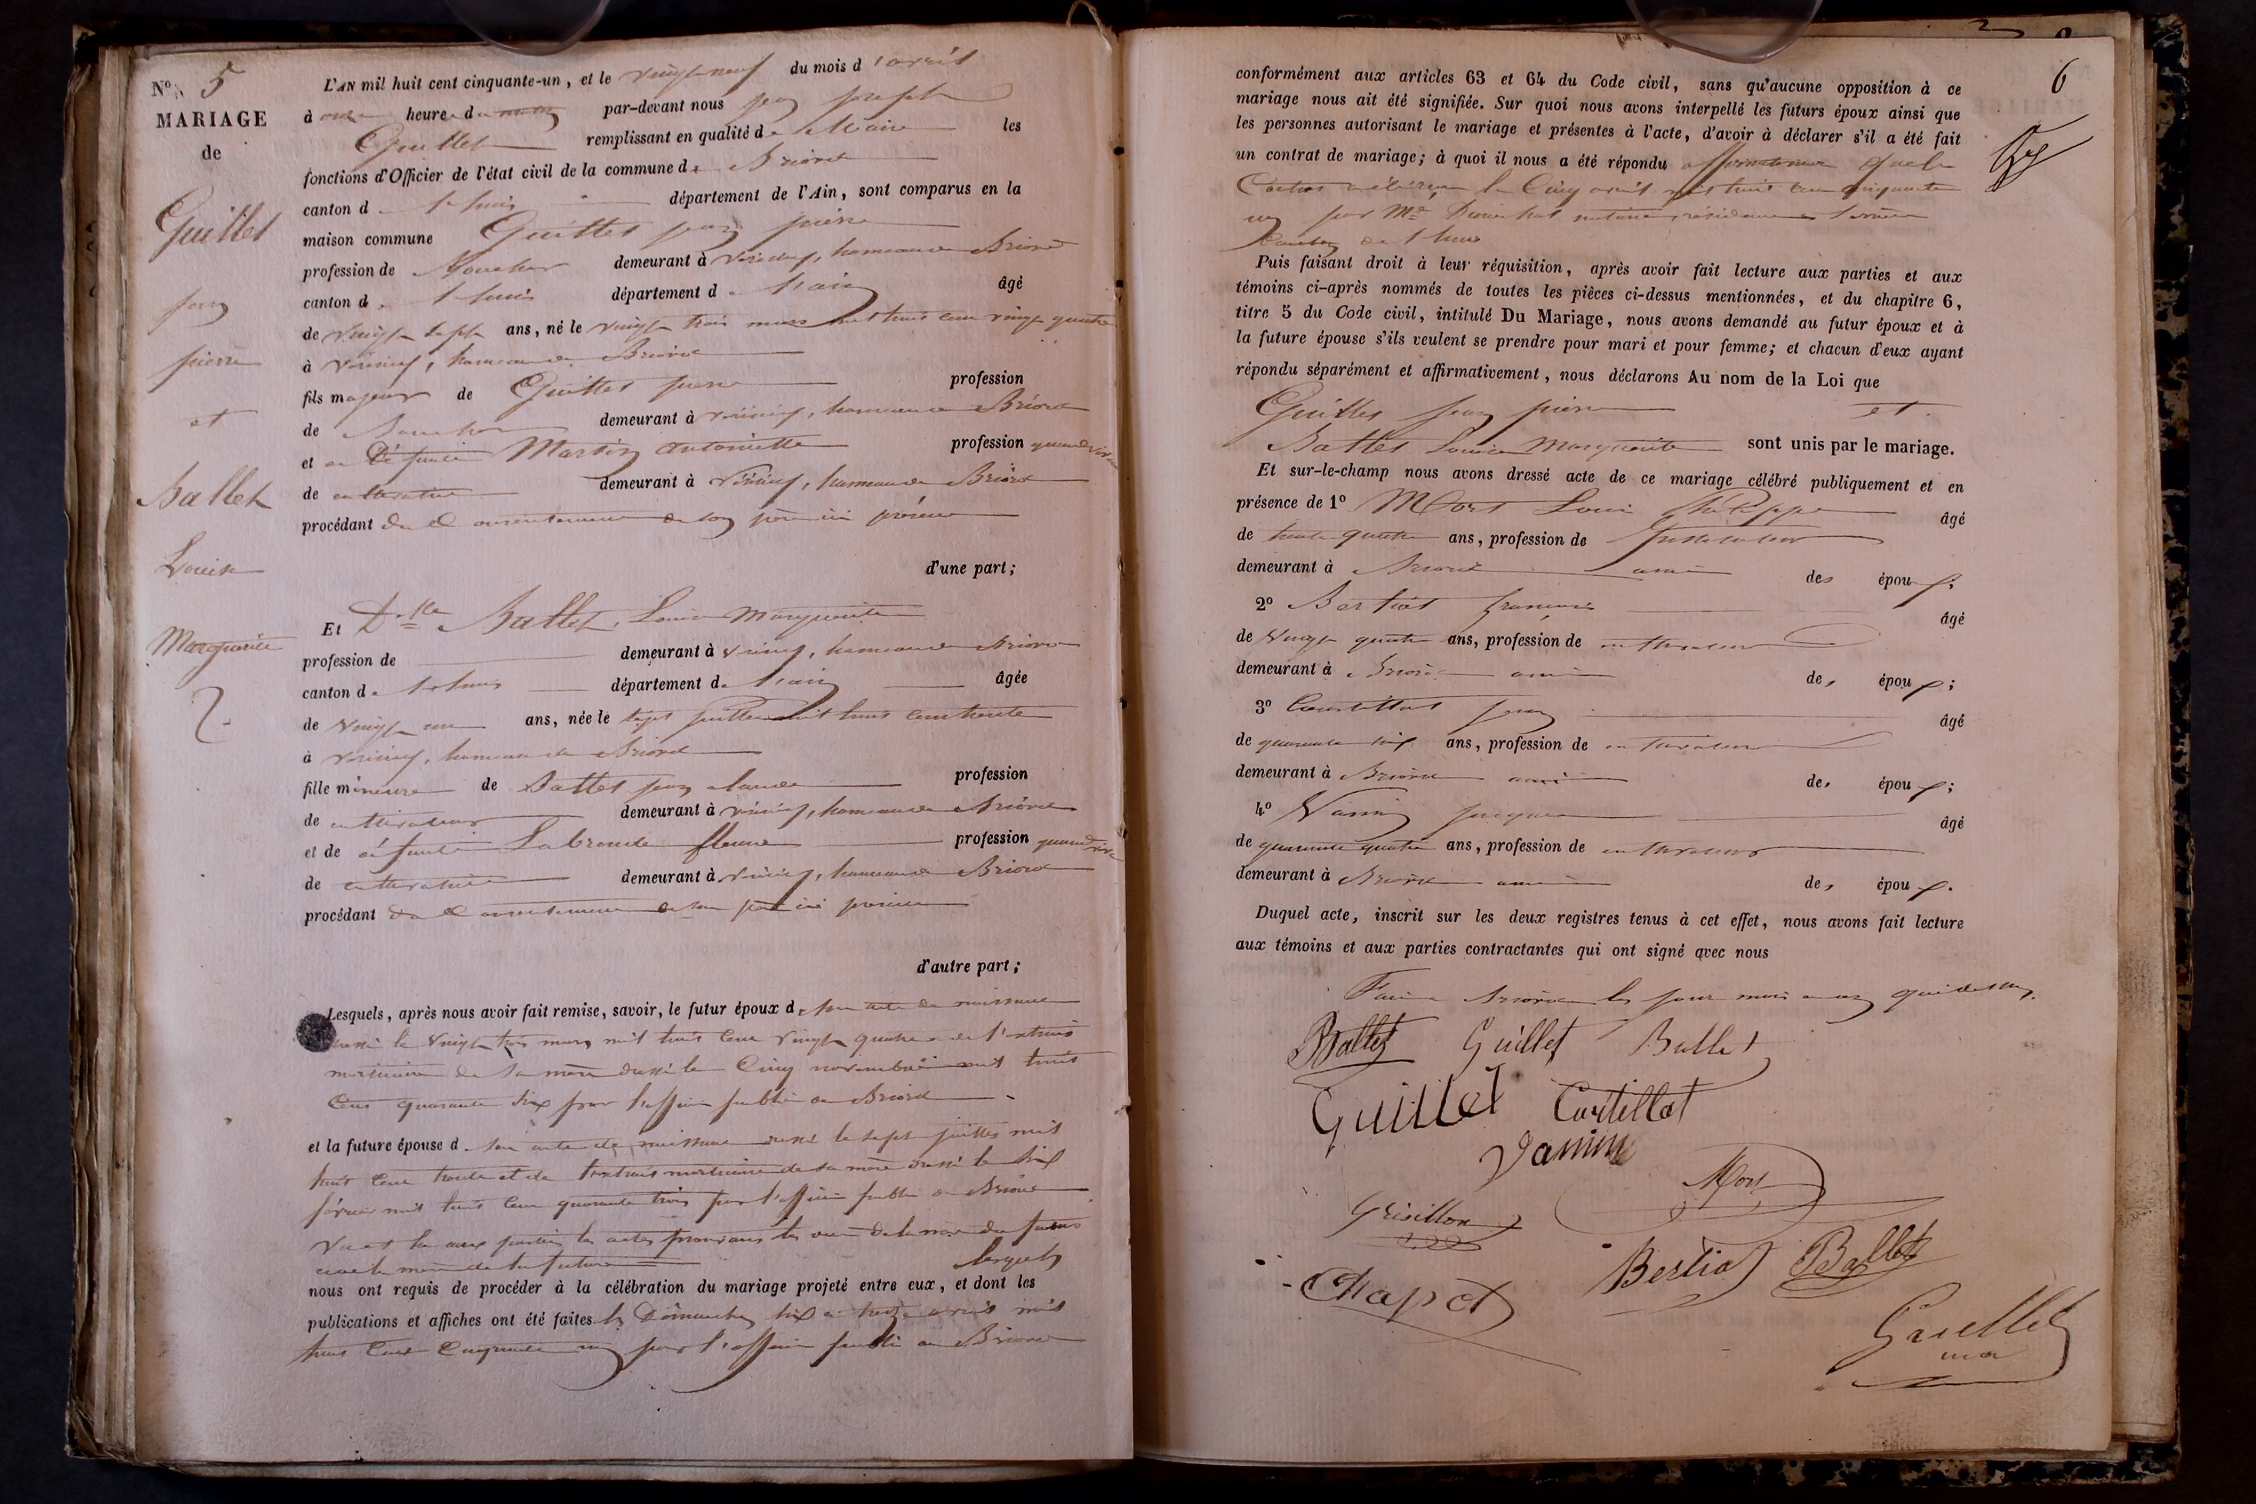 No 5
MARIAGE
de
Guillet
jean
pierre
et
Ballet
Louise
Marguerite
L'AN mil huit cent cinquante-un, et le vingt neuf du mois d'avril
à onze heure du matin par-devant nous jean joseph
Guillet remplissant en qualité de Maire les
fonctions d'Officier de l'état civil de la commune de Briord
canton de Lhuis département de l'Ain, sont comparus en la
maison commune Guillet jean pierre
profession de demeurant à vérizieu, hameau de Briord
canton de Lhuis département de l'ain âgé
de vingt sept ans, né le vingt trois mars mil huit cent vingt quatre
à vérizieu, hameau de Briord
fils majeur de Guillet pierre profession
de demeurant à vérizieu, hameau de Briord
et de défunte Martin antoinette profession quand vivait
de cultivatrice demeurant à Vérizieu, hameau de Briord
procédant du consentement de son père ici présent
d'une part;
Et Dlle Ballet, Louise Marguerite
profession de demeurant à vérizieu, hameau de Briord
canton de Lhuis département de l'ain âgée
de vingt un ans, née le sept juillet mil huit cent trente
à vérizieu, hameau de Briord
fille mineure de Ballet jean claude profession
de cultivateur demeurant à vérizieu, hameau de Briord
et de défunte Labronde profession quand vivait
de cultivatrice demeurant à vérizieu, hameau de Briord
procédant du consentement de son père ici présent
d'autre part;
Lesquels, après nous avoir fait remise, savoir, le futur époux de son acte de naissance
dressé le vingt trois mars mil huit cent vingt quatre et de l'extrait
mortuaire de sa mère dressé le Cinq novembre mil huit
Cent quarante six par l'officier public de Briord
et la future épouse de son acte de naissance dressé le sept juillet mil
huit cent trente et de l'extrait mortuaire de sa mère dressé le six
février mil huit cent quarante trois par l'officier public de Briord
Vu et lu aux parties les actes prouvant les décès de la mère du futur
et de la mère de la future lesquels
nous ont requis de procéder à la célébration du mariage projeté entre eux, et dont les
publications et affiches ont été faites les Dimanches six et treize avril mil
huit Cent Cinquante un par l'officier public de Briord
6
conformément aux articles 63 et 64 du Code civil, sans qu'aucune opposition à ce
mariage nous ait été signifiée. Sur quoi nous avons interpellé les futurs époux ainsi que
les personnes autorisant le mariage et présentes à l'acte, d'avoir à déclarer s'il a été fait
un contrat de mariage; à quoi il nous a été répondu affirmativement que le
Contrat a été reçu le Cinq avril mil huit cent cinquante
un par Me notaire à résidence de
canton de Lhuis
Puis faisant droit à leur réquisition, après avoir fait lecture aux parties et aux
témoins ci-après nommés de toutes les pièces ci-dessus mentionnées, et du chapitre 6,
titre 5 du Code civil, intitulé Du Mariage, nous avons demandé au futur époux et à
la future épouse s'ils veulent se prendre pour mari et pour femme; et chacun d'eux ayant
répondu séparément et affirmativement, nous déclarons Au nom de la Loi que
Guillet jean pierre et
Ballet Louise Marguerite sont unis par le mariage.
Et sur-le-champ nous avons dressé acte de ce mariage célébré publiquement et en
présence de 1o Mort Louis Philippe âgé
de trente quatre ans, profession de Instituteur
demeurant à Briord ami des époux;
2o Bertiat françois âgé
de vingt quatre ans, profession de cultivateur
demeurant à Briord ami des époux;
3o Courtillat jean âgé
de quarante six ans, profession de cultivateur
demeurant à Briord ami des époux;
4o Vanin jacques âgé
de quarante quatre ans, profession de cultivateur
demeurant à Briord ami des époux.
Duquel acte, inscrit sur les deux registres tenus à cet effet, nous avons fait lecture
aux témoins et aux parties contractantes qui ont signé avec nous
Fait à Briord les jour mois et an que dessus.
Ballet Guillet Ballet
Guillet Curtillat
Vanin
Mort
Grisillon
Bertiat Ballet
Chapot
Guillet